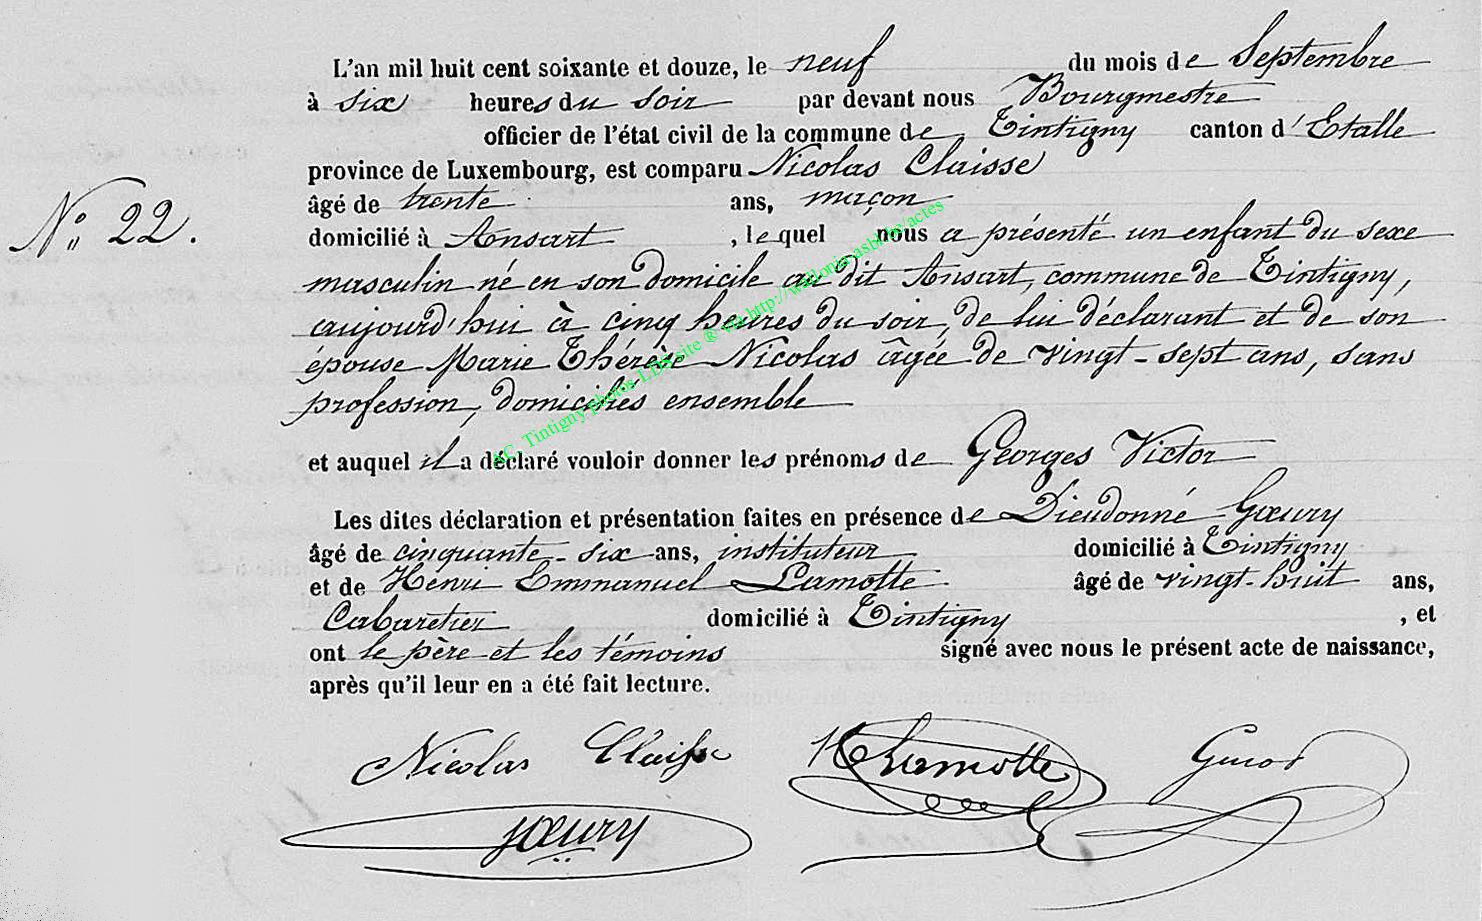 L'an mil huit cent soixante et douze, le neuf du mois de Septembre
à six heures du soir par devant nous Bourgmestre
officier de l'état civil de la commune de Tintigny canton d'Etalle
province de Luxembourg, est comparu Nicolas Claisse
âgé de trente ans, maçon
domicilié à Ansart, lequel nous a présenté un enfant du sexe
N° 22.
masculin né en son domicile au dit Ansart, commune de Tintigny,
aujourd'hui à cinq heures du soir, de lui déclarant et de son
épouse Marie Thérèse Nicolas âgée de vingt-sept ans, sans
profession, domiciliés ensemble
et auquel il a déclaré vouloir donner les prénoms de Georges Victor
Les dites déclaration et présentation faites en présence de Dieudonné Goeury
âgé de cinquante-six ans, instituteur domicilié à Tintigny
et de Henri Emmanuel Lamotte âgé de vingt-huit ans,
Cabaretier domicilié à Tintigny, et
ont le père et les témoins signé avec nous le présent acte de naissance,
après qu'il leur en a été fait lecture.
Nicolas Claisse HLamotte
Goeury
AC. Tintigny photos LDB site ® via http://wallonia-asbl.be/actes